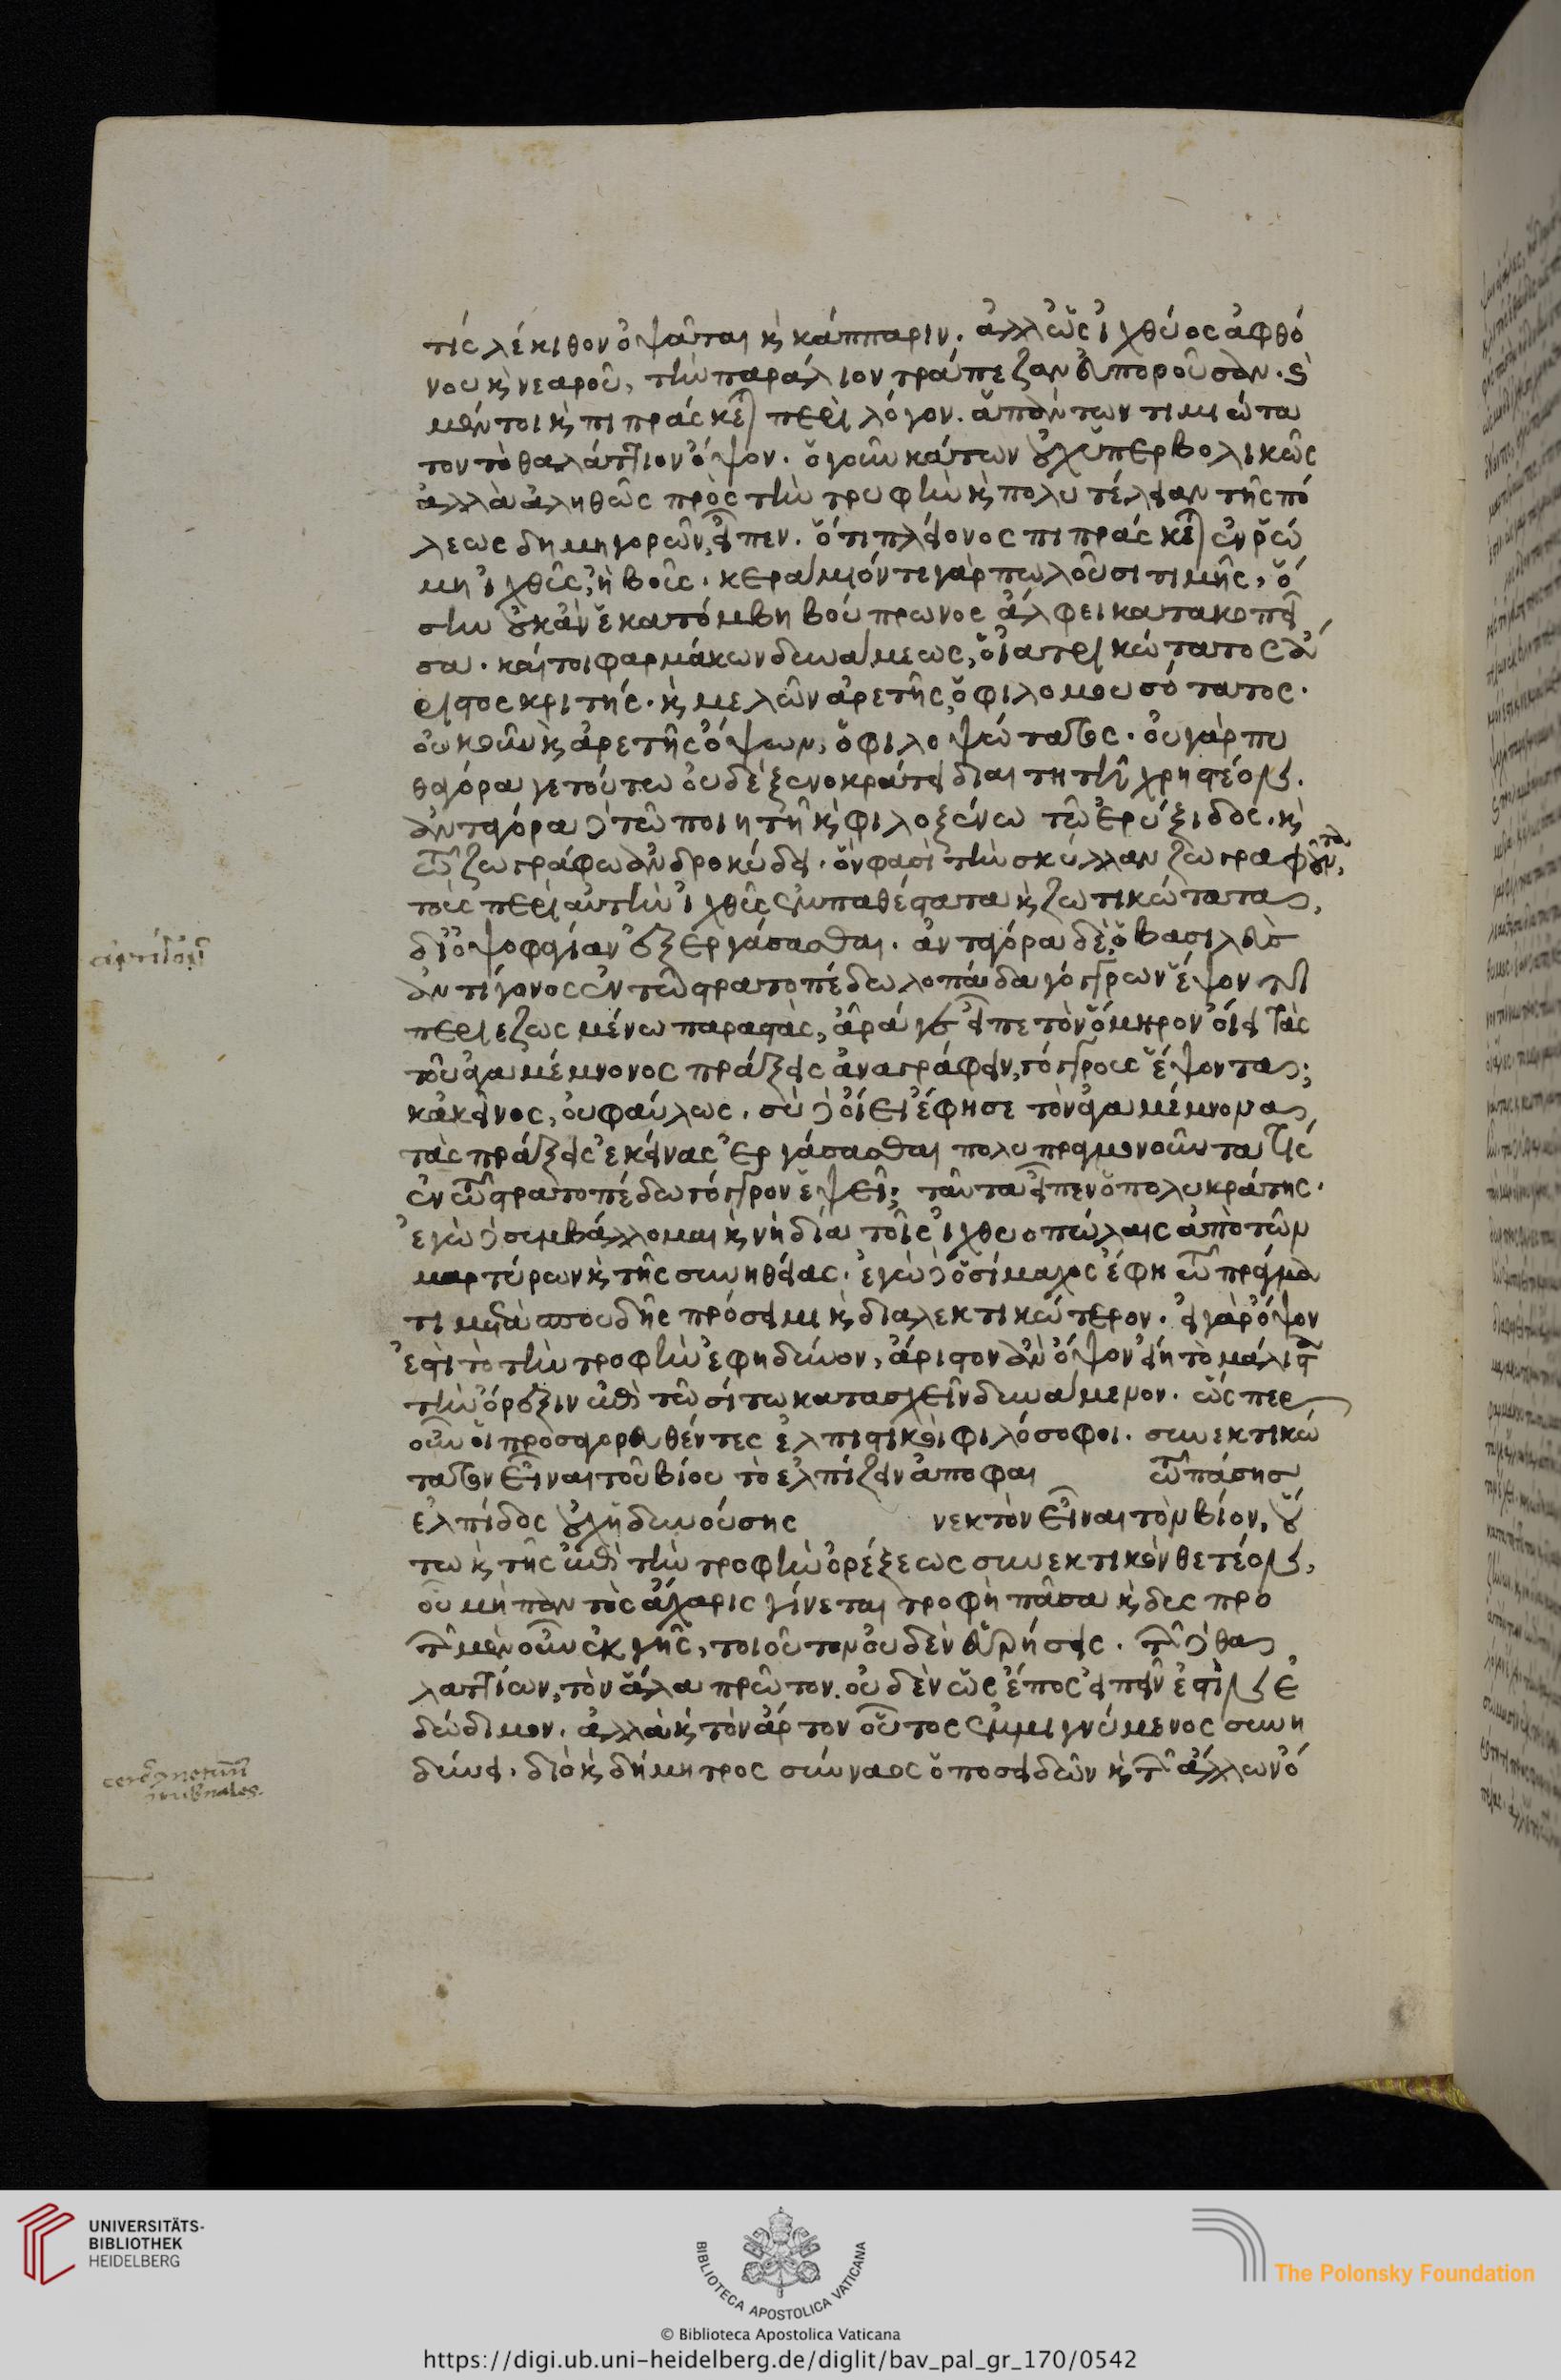 τίς λέκιθον ὀψᾶται κ̀ κάππαριν. ἀλλ' ὡς ἰχθύος ἀφθό
νου κ̀ νεαροῦ, τὴν παράλιον τράπεζαν εὐποροῦσαν. ὃ
μέντοι κ̀ πιπράσκεται περὶ λόγον. ἁπάντων τιμιώτα
τον τὸ θαλάττιον ὄψον. ὁ γοῦν κάτων οὐχ ὑπερβολικῶς
ἀλλὰ ἀληθῶς πρὸς τὴν τρυφὴν κ̀ πολυτέλειαν τῆς πό
λεως δημηγορῶν, εἶπεν. ὅτι πλείονος πιπράσκεται ἐν ῥώ
μη ἰχθῦς, ἢ βοῦς. κεράμιόν τε γὰρ πωλοῦσι τιμῆς, ὅ
σην οὐκ ἂν ἑκατόμβη βούπρωνος ἄλφει κατακοπεῖ
σα. καίτοι φαρμάκων δυνάμεως, ὁ ἰατρικώτατος ἄ
ριστος κριτής. κ̀ μελῶν ἀρετῆς, ὁ φιλομουσότατος.
οὐκοῦν κ̀ ἀρετῆς ὄψων, ὁ φιλοψώτατος. οὐ γὰρ πυ
θαγόρα γε τούτω οὐδὲ ξενοκράτει διαιτητῇ χρηστέον.
ἀνταγόρα δὲ τῶ ποιητῇ κ̀ φιλοξένω τῶ ἐρύξιδος. κ̀
τῶ ζωγράφω ἀνδροκύδει. ὅν φασι τὴν σκύλλαν ζωγραφοῦντα,
τοὺς περὶ αὐτὴν ἰχθῦς ἐμπαθέστατα κ̀ ζωτικώτατα,
δι' ὀψοφαγίαν ἐξεργάσασθαι. ἀνταγόρα δὲ, ὁ βασιλεὺς
ἀντίγονος ἐν τῶ στρατοπέδω λοπάδα γόγγρων ἕψοντι
περιεζωσμένω παραστὰς, ἆρά γε εἶπε τὸν ὅμηρον οἴει τὰς
τοῦ ἀγαμέμνονος πράξεις ἀναγράφειν, γόγγρους ἕψοντα;
κἀκεῖνος, οὐ φαύλως. σὺ δὲ οἴει ἔφησε τὸν ἀγαμέμνονα
τὰς πράξεις ἐκείνας ἐργάσασθαι πολυπραγμονοῦντα τίς
ἐν τῶ στρατοπέδω γόγγρον ἕψει; ταῦτα εἶπεν ὁ πολυκράτης.
ἐγὼ δὲ συμβάλλομαι κ̀ νὴ δία τοῖς ἰχθυοπώλαις ἀπὸ τῶν
μαρτύρων κ̀ τῆς συνηθείας. ἐγὼ δὲ ὁ σίμαχος ἔφη τῶ πράγμα
τι μετὰ σπουδῆς πρόσειμι κ̀ διαλεκτικώτερον. εἰ γὰρ ὄψον
ἐστὶ τὸ τὴν τροφὴν ἐφηδύνον, ἄριστον ἂν ὄψον εἴη τὸ μάλιστα
τὴν ὄρεξιν ἐπὶ τῶ σίτω κατασχεῖν δυνάμενον. ὥς περ
οὖν οἱ προσαγορευθέντες ἐλπιστικοὶ φιλόσοφοι. συνεκτικώ
τατον εἶναι τοῦ βίου τὸ ἐλπίζειν ἀποφαι τῶ πάσησ
ἐλπίδος οὐχ ἡδυνούσης νεκτὸν εἶναι τὸν βίον, οὕ
τω κ̀ τῆς ἐπὶ τὴν τροφὴν ὀρέξεως συνεκτικὸν θετέον,
οὗ μὴ παντὸς ἄχαρις γίνεται τροφὴ πᾶσα κ̀ δυς προ
τῶν μὲν οὖν ἐκ γῆς, τοιοῦτον οὐδὲν εὑρήσεις. τῶν δὲ θα
λαττίων, τὸν ἅλα πρῶτον. οὐδὲν ὡς ἔπος εἰπεῖν ἐστὶν ἐ
δώδιμον. ἀλλὰ κ̀ τὸν ἄρτον οὗτος ἐμμιγνύμενος συνη
δύνει. διὸ κ̀ δήμητρος σύνναος ὁ ποσειδῶν κ̀ τῶν ἄλλων ὄ